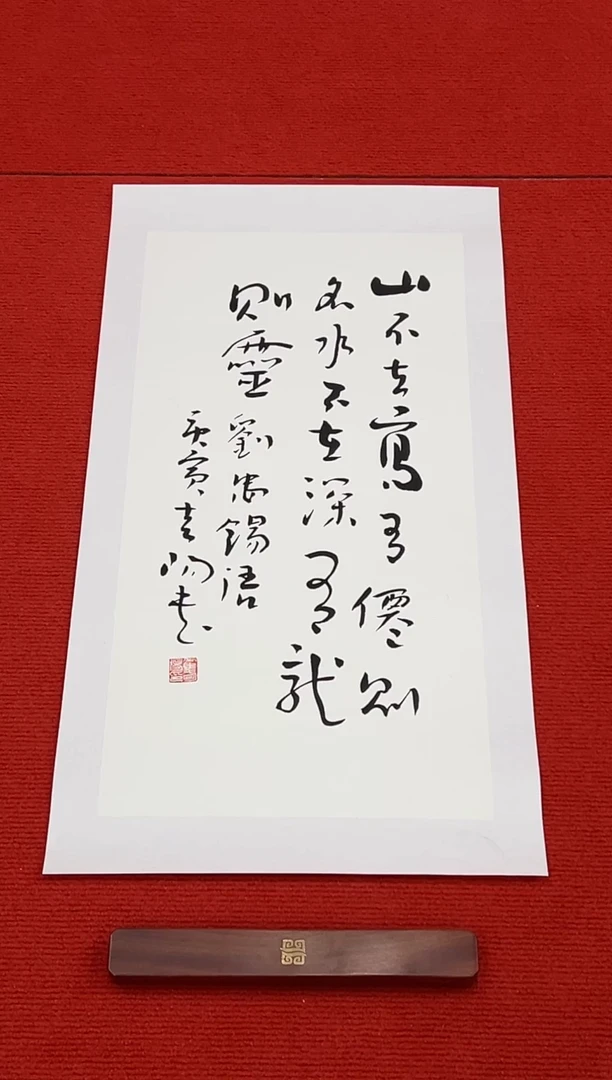 山不在高有僊則
名水不在深有龍
則靈 劉禹錫語
庚寅 陽書